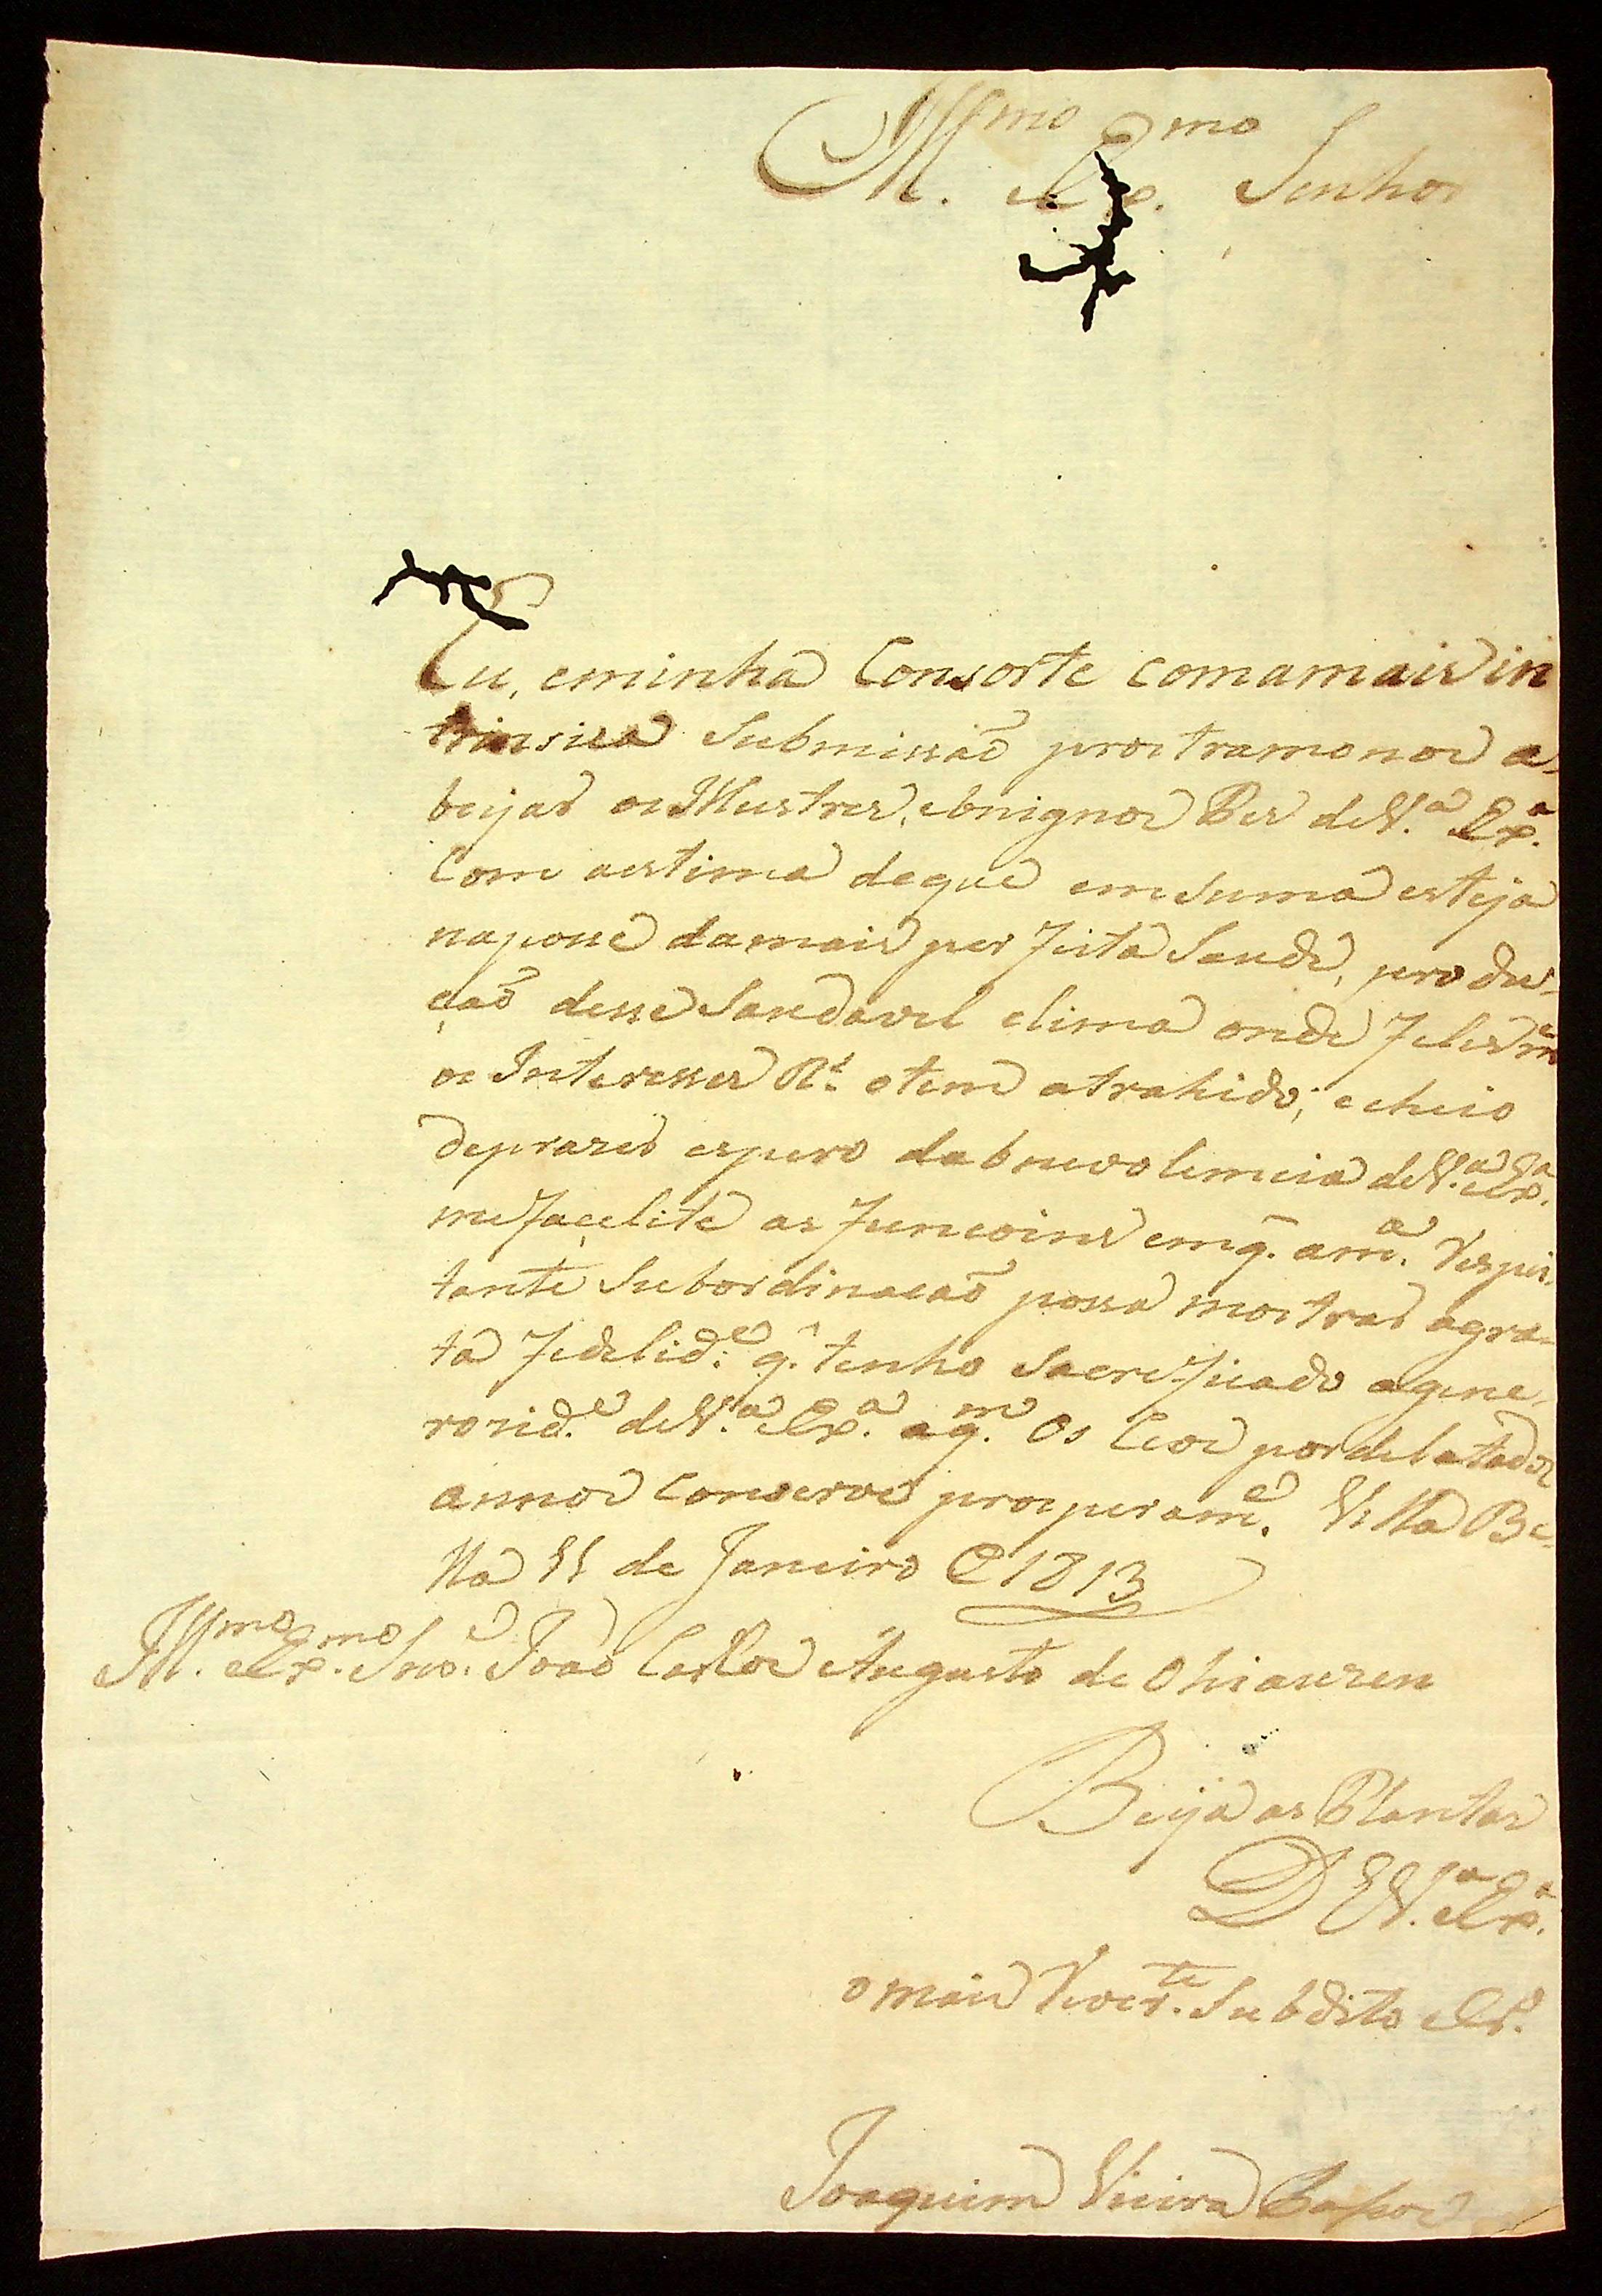 Ill.mo Ex.mo Senhor
Eu, eminha Consorte comamais in
trinsica Submissaõ prostramonos a-
beijar os Illustres, ebnignos Pes deV.a Ex.a
Com aestima deque emSuma esteja
naposse damais perfeita Saude, produs-
çaõ desse Saudavel clima onde felesm.e
os Interesses R.s otem atrahido; echeio
deprazer espero dabnevolencia deV.a Ex.a
mefaçelite as funcoins emq. am.a Respei-
tante Subordinacaõ possa mostrar agra-
ta fedelid.e q. tenho Sacreficado agene-
rozid.e deV.a Ex.a aq.m Os Ceos pordelatados
annos Conserve prosperam.e Villa Be-
lla 11 de Janeiro @ 1813
Ill.mo Ex.mo Snr. Joaõ Carlos Augusto de Ohiauzen
Beija as Plantas
DEV.a Ex.a
omais Rever.te Subdito
Joaquim Vieira Passos